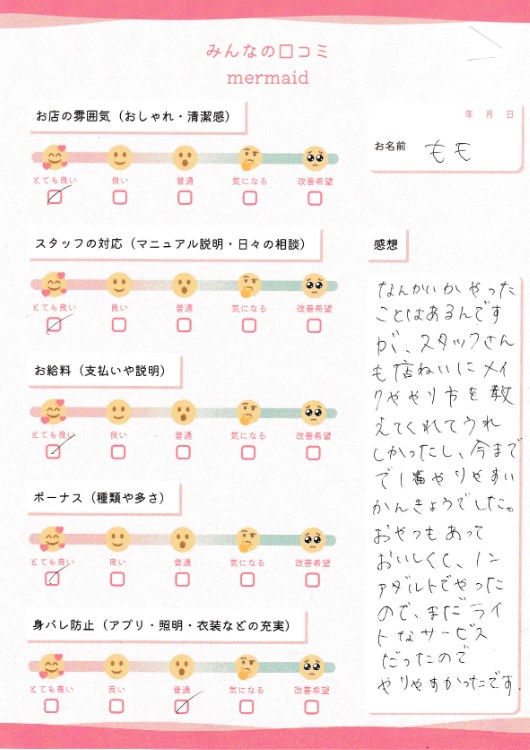 みんなの口コミ
mermaid
年 月 日
お名前 もも
お店の雰囲気（おしゃれ・清潔感）
とても良い 良い 普通 気になる 改善希望
スタッフの対応（マニュアル説明・日々の相談）
とても良い 良い 普通 気になる 改善希望
お給料（支払いや説明）
とても良い 良い 普通 気になる 改善希望
ボーナス（種類や多さ）
とても良い 良い 普通 気になる 改善希望
身バレ防止（アプリ・照明・衣装などの充実）
とても良い 良い 普通 気になる 改善希望
感想
なんかいかやった
ことはあるんです
が、スタッフさん
も店ねいにメイ
クややり方を教
えてくれてうれ
しかったし、今まで
で1番やりやすい
かんきょうでした。
おやつもあって
おいしくし、ノン
アダルトでやった
ので、まだライ
トなサービス
だったので
やりやすかったです。